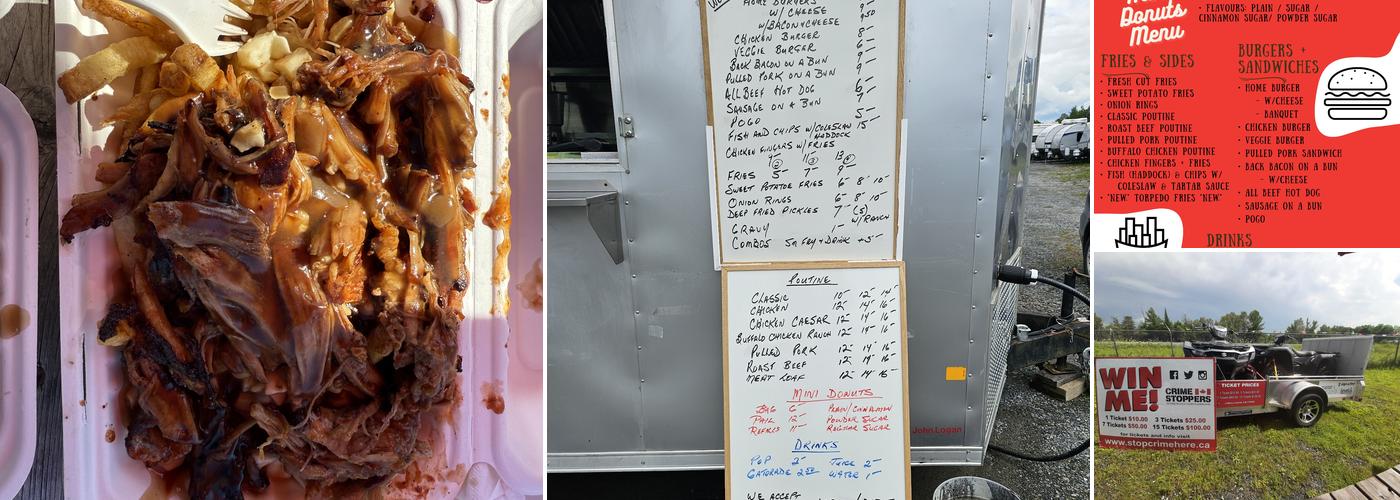 HOME BURGERS
W/ CHEESE 9-
W/BACON+CHEESE 9.50
CHICKEN BURGER 8-
VEGGIE BURGER 6-
BACK BACON ON A BUN 9-
PULLED PORK ON A BUN 9-
ALL BEEF HOT DOG 6-
SAUSAGE ON A BUN 7-
POGO 5-
FISH AND CHIPS W/COLESLAW 15-
HADDOCK
CHICKEN FINGERS W/FRIES
FRIES 5- 7- 9-
SWEET POTATOE FRIES 6- 8- 10-
ONION RINGS 6- 8- 10-
DEEP FRIED PICKLES 7- (5)
W/RANCH
GRAVY 1-
COMBOS SM FRY+DRINK +5-
POUTINE
CLASSIC 10- 12- 14-
CHICKEN 12- 14- 16-
CHICKEN CAESAR 12- 14- 16-
BUFFALO CHICKEN RANCH 12- 14- 16-
PULLED PORK 12- 14- 16-
ROAST BEEF 12- 14- 16-
MEAT LOAF 12- 14- 16-
MINI DONUTS
BAG 6- PLAIN/CINNAMON
PAIL 12- POWDER SUGAR
REFILLS 11- REGULAR SUGAR
DRINKS
POP 2- JUICE 2-
GATORADE 2.50 WATER 1-
WE ACCEPT
John Logan
Donuts
Menu
• FLAVOURS: PLAIN / SUGAR /
CINNAMON SUGAR/ POWDER SUGAR
FRIES & SIDES
• FRESH CUT FRIES
• SWEET POTATO FRIES
• ONION RINGS
• CLASSIC POUTINE
• ROAST BEEF POUTINE
• PULLED PORK POUTINE
• BUFFALO CHICKEN POUTINE
• CHICKEN FINGERS + FRIES
• FISH (HADDOCK) & CHIPS W/
COLESLAW & TARTAR SAUCE
• *NEW* TORPEDO FRIES *NEW*
BURGERS +
SANDWICHES
• HOME BURGER
- W/CHEESE
- BANQUET
• CHICKEN BURGER
• VEGGIE BURGER
• PULLED PORK SANDWICH
• BACK BACON ON A BUN
- W/CHEESE
• ALL BEEF HOT DOG
• SAUSAGE ON A BUN
• POGO
DRINKS
WIN
ME!
CRIME
STOPPERS
1 Ticket $10.00 3 Tickets $25.00
7 Tickets $50.00 15 Tickets $100.00
for tickets and info visit
www.stopcrimehere.ca
TICKET PRICES